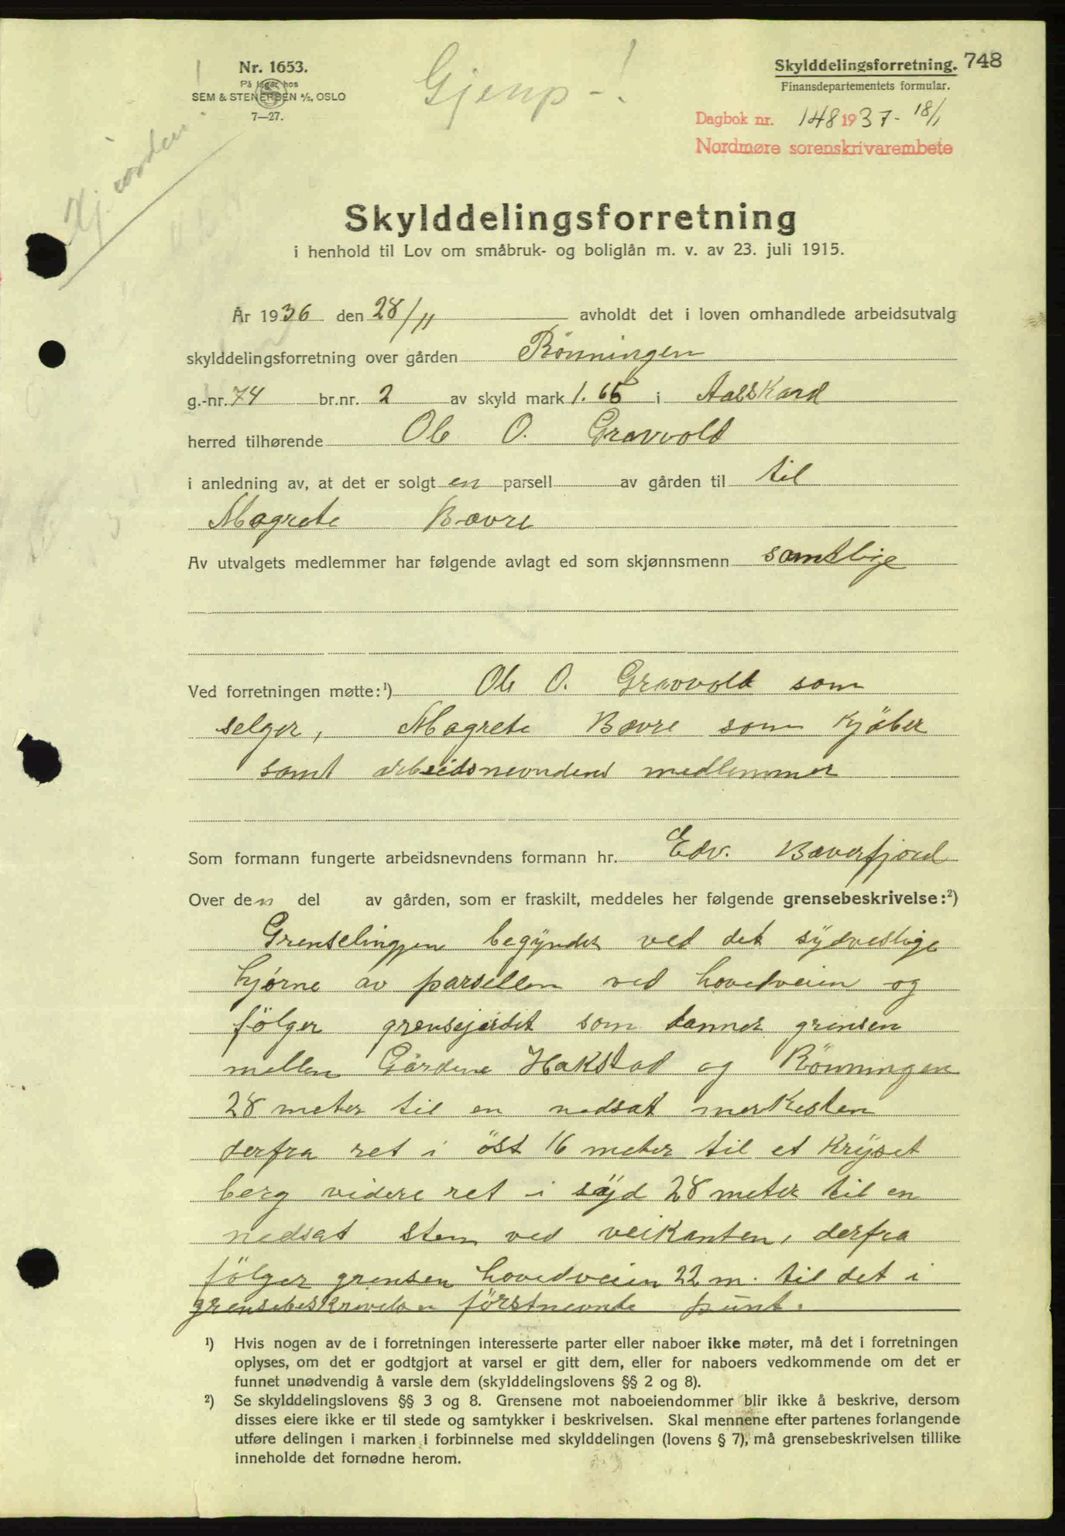 Nr. 1653.
På lager hos
SEM & STENERSEN A/S, OSLO
7—27.
Gjenp - !
Skylddelingsforretning. 748
Finansdepartementets formular.
Dagbok nr. 148 1937 - 18/1
Nordmøre sorenskrivarembete
Skylddelingsforretning
i henhold til Lov om småbruk- og boliglån m. v. av 23. juli 1915.
År 1936 den 28/11 avholdt det i loven omhandlede arbeidsutvalg
skylddelingsforretning over gården Rönningen
g.-nr. 74 br.nr. 2 av skyld mark 1.66 i Aalskard
herred tilhørende Ole O. Gravvold
i anledning av, at det er solgt en parsell av gården til til
Magrete Bævre
Av utvalgets medlemmer har følgende avlagt ed som skjønnsmenn samtlige
Ved forretningen møtte:¹) Ole O. Gravvold som
selger, Magrete Bævre som kjøber
samt arbeidsnevndens medlemmer
Som formann fungerte arbeidsnevndens formann hr. Edv. Bæverfjord
Over den del av gården, som er fraskilt, meddeles her følgende grensebeskrivelse:²)
Grenselinjen begynder ved det sydvestlige
hjørne av parsellen ved hovedveien og
følger grensejerdet som danner grensen
mellem Gårdene Hakstad og Rönningen
28 meter til en nedsat merkesten
derfra ret i öst 16 meter til et Krysset
berg videre ret i syd 28 meter til en
nedsat sten ved veikanten, derfra
følger grensen hovedveien 22 m. til det i
grensebeskrivelsen førstnevnte punt.
¹) Hvis nogen av de i forretningen interesserte parter eller naboer ikke møter, må det i forretningen
oplyses, om det er godtgjort at varsel er gitt dem, eller for naboers vedkommende om det er
funnet unødvendig å varsle dem (skylddelingslovens §§ 2 og 8).
²) Se skylddelingslovens §§ 3 og 8. Grensene mot naboeiendommer blir ikke å beskrive, dersom
disses eiere ikke er til stede og samtykker i beskrivelsen. Skal mennene efter partenes forlangende
utføre delingen i marken i forbinnelse med skylddelingen (lovens § 7), må grensebeskrivelsen tillike
inneholde det fornødne herom.